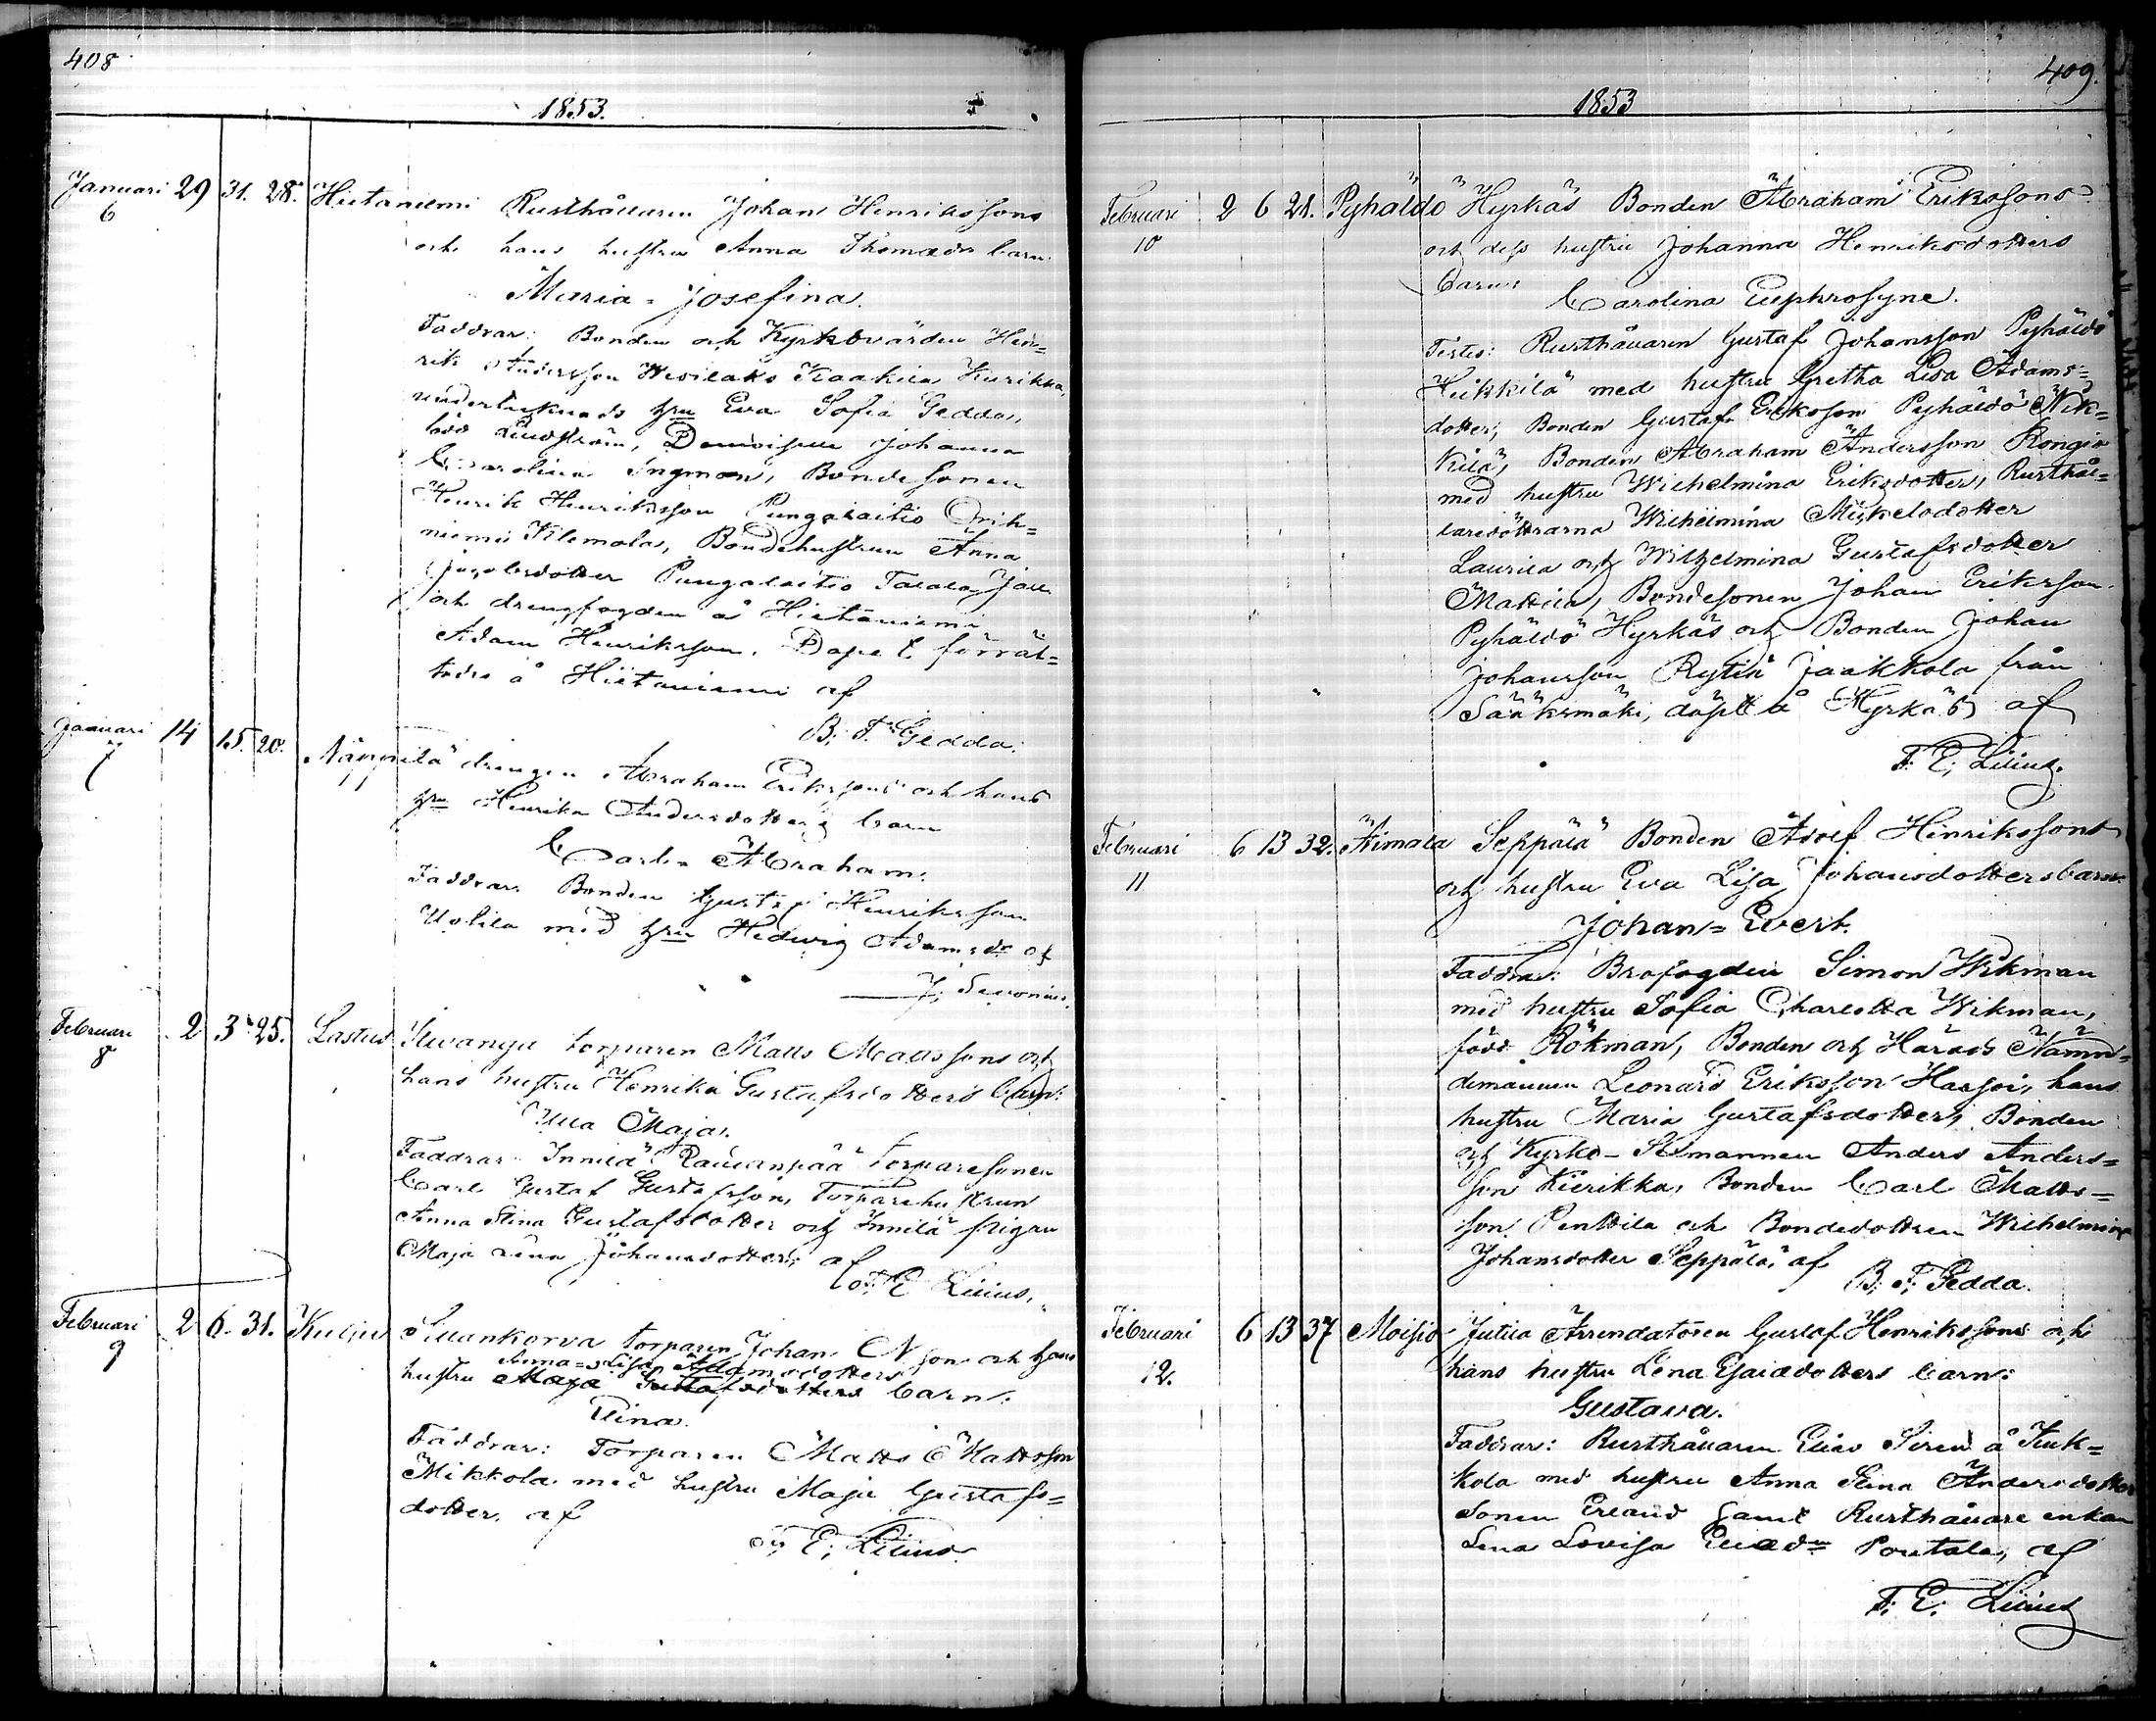 408
1853.
Januari 29 31. 28. Hietaniemi Rusthållaren Johan Henrikssons
6
och hans hustru Anna Thomadr barn:
Maria = Josefina.
Faddrar: Bonden och Kyrkovärden Hen=
rik Andersson Wesilaks Kaakila Kurikka,
undertecknads hru Eva Sofia Gedda,
född Lindström, Demoiselle Johanna
Carolina Ingman, Bondesonen
Henrik Henriksson Pungalaitio Orih=
niemi Klemola, Bondehustrun Anna
Jacobsdotter Pungalaitio Talala Jall
och drengfogden å Hietaniemi
Adam Henriksson. Dopet förrät=
tades å Hietaniemi af
B. F. Gedda.
Januari 14 15. 20. Näppilä drengen Abraham Erikssons och hans
7
hru Henrika Andersdotters barn
Carl = Abraham.
Faddrar: Bonden Gustaf Henriksson
Uotila med hru Hedwig Adamsdr af
J. Sevonius.
Februari 2 3 25. Lastus Siwangu torparen Matts Mattssons och
8
hans hustru Henrika Gustafsdotters barn:
Ulla Maja.
Faddrar Innilä Pallanpää Torparesonen
Carl Gustaf Gustafsson, Torparehustrun
Anna Stina Gustafsdotter och Innilä pigan
Maja Lena Johansdotter, af
F. E. Lilius.
Februari 2 6. 31. Kulju Sillankorva torparen Johan N. sons och hans
9
Anna=Lisa Adamsdotters
hustru Maja Gustafsdotters barn:
Tiina.
Faddrar: Torparen Matts Mattsson
Mikkola med hustru Maja Gustafs=
dotter. af
F. E. Lilius.
409.
1853
Februari 2 6 28. Pyhäldö Hyrkäs Bonden Abraham Erikssons
10
och dess hustru Johanna Henriksdotters
barn:
Carolina Euphrosyne.
Testes: Rusthållaren Gustaf Johansson Pyhäldö
Heikkilä med hustru Gretha Lisa Adams=
dotter, Bonden Gustaf Eriksson Pyhäldö Nik=
kilä, Bonden Abraham Andersson Kongin
med hustru Wilhelmina Eriksdotter, Rusthål=
laredöttrarna Wilhelmina Mickelsdotter
Laurila och Wilhelmina Gustafsdotter
Mattila, Bondesonen Johan Eriksson
Pyhäldö Hyrkäs och Bonden Johan
Johansson Rytilä Jaakkola från
Sääksmäki, döpt å Hyrkäs af
F. E. Lilius.
Februari 6 13 32. Aimala Seppälä Bonden Adolf Henrikssons
11
och hustru Eva Lisa Johansdotters barn:
Johan = Evert.
Faddrar: Brofogden Simon Wikman
med hustru Sofia Charlotta Wikman,
född Rökman, Bonden och Härads Nämn=
demannen Leonard Eriksson Hassoi, hans
hustru Maria Gustafsdotter, Bonden
och Kyrko-Sexmannen Anders Anders=
son Kierikka, Bonden Carl Matts=
son Penttila och Bondedottren Wilhelmina
Johansdotter Seppälä, af
B. F. Gedda.
Februari 6 13 37 Moisio Jutila Arrendatoren Gustaf Henrikssons och
12.
hans hustru Lena Esaiædotters barn:
Gustava.
Faddrar: Rusthållaren Elias Siren å Kuk=
kola med hustru Anna Stina Andersdotter
Sonen Erland samt Rusthållare enkan
Lena Lovisa Eliædr Pontala, af
F. E. Lilius